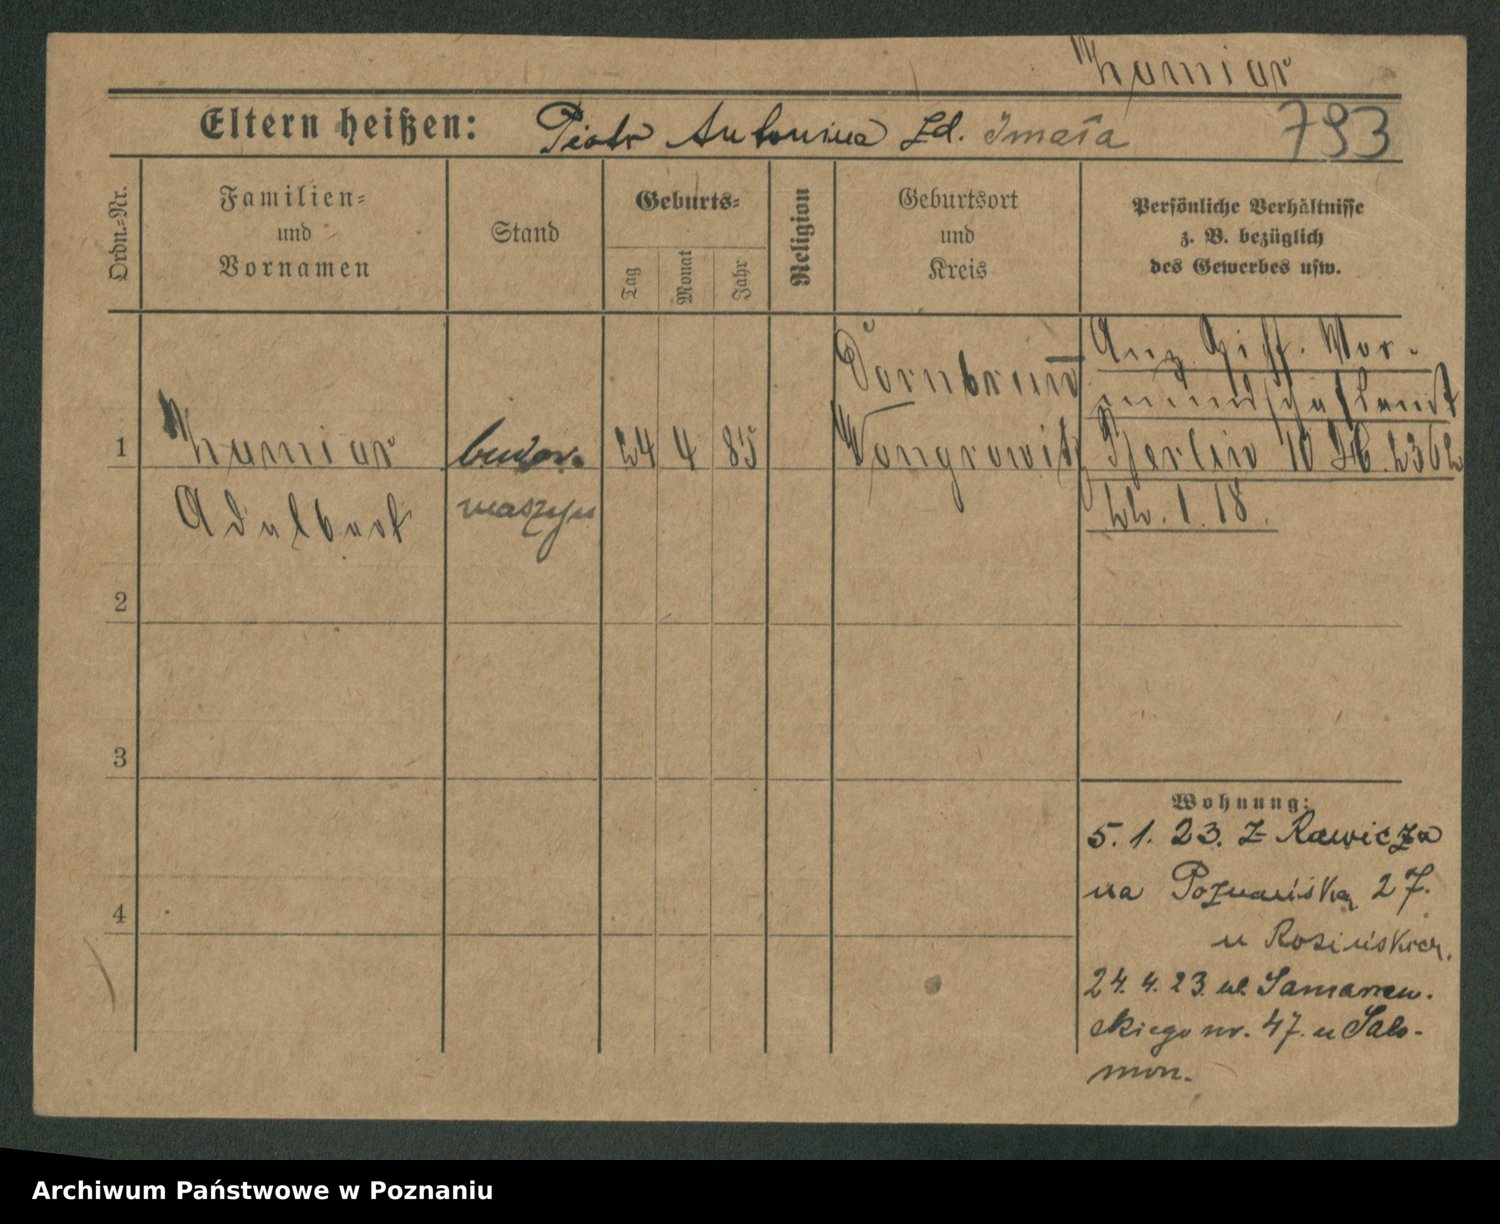 Zumiar
Eltern heißen: Piotr Antonina zd. Imała
793
Ordn.-Nr.
Familien-
und
Vornamen
Stand
Geburts-
Tag
Monat
Jahr
Religion
Geburtsort
und
Kreis
Persönliche Verhältnisse
z. B. bezüglich
des Gewerbes usw.
1
Adalbert
budow.
maszyn
24 4 85
Dornbrunn
Wongrowitz
Anz. Vor-
mundschaftsamt
Berlin 10 2362
22. 1. 18.
2
3
4
Wohnung:
5. 1. 23. z Rawicza
na Poznańską 27.
u Rosińskiej.
24. 4. 23. ul Samarzew-
skiego nr. 47. u Salo-
mon.
Archiwum Państwowe w Poznaniu